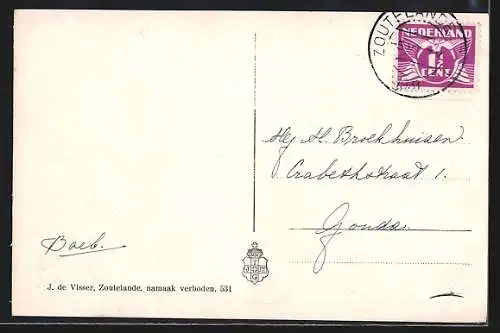 ZOUTELANDE
NEDERLAND
1½
CENT
Hej. H. Broekhuisen
Crabethstraat 1.
Gouda.
Baeb.
J. de Visser, Zoutelande, namaak verboden, 531